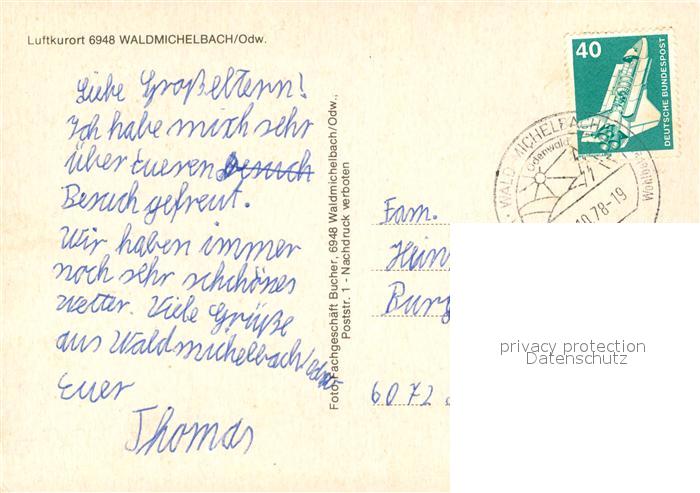 Luftkurort 6948 WALDMICHELBACH/Odw.
Liebe Großeltern!
Ich habe mich sehr
über Eueren besuch
Besuch gefreut.
Wir haben immer
noch sehr schönes
wetter. Viele Grüße
aus Waldmichelbach/odw.
Euer
Thomas
Foto, Fachgeschäft Bucher, 6948 Waldmichelbach/Odw.,
Poststr. 1 - Nachdruck verboten
40
DEUTSCHE BUNDESPOST
WALD-MICHELBACH
Odenwald
10.78-19
Fam.
Hein
Burg
6072
privacy protection
Datenschutz